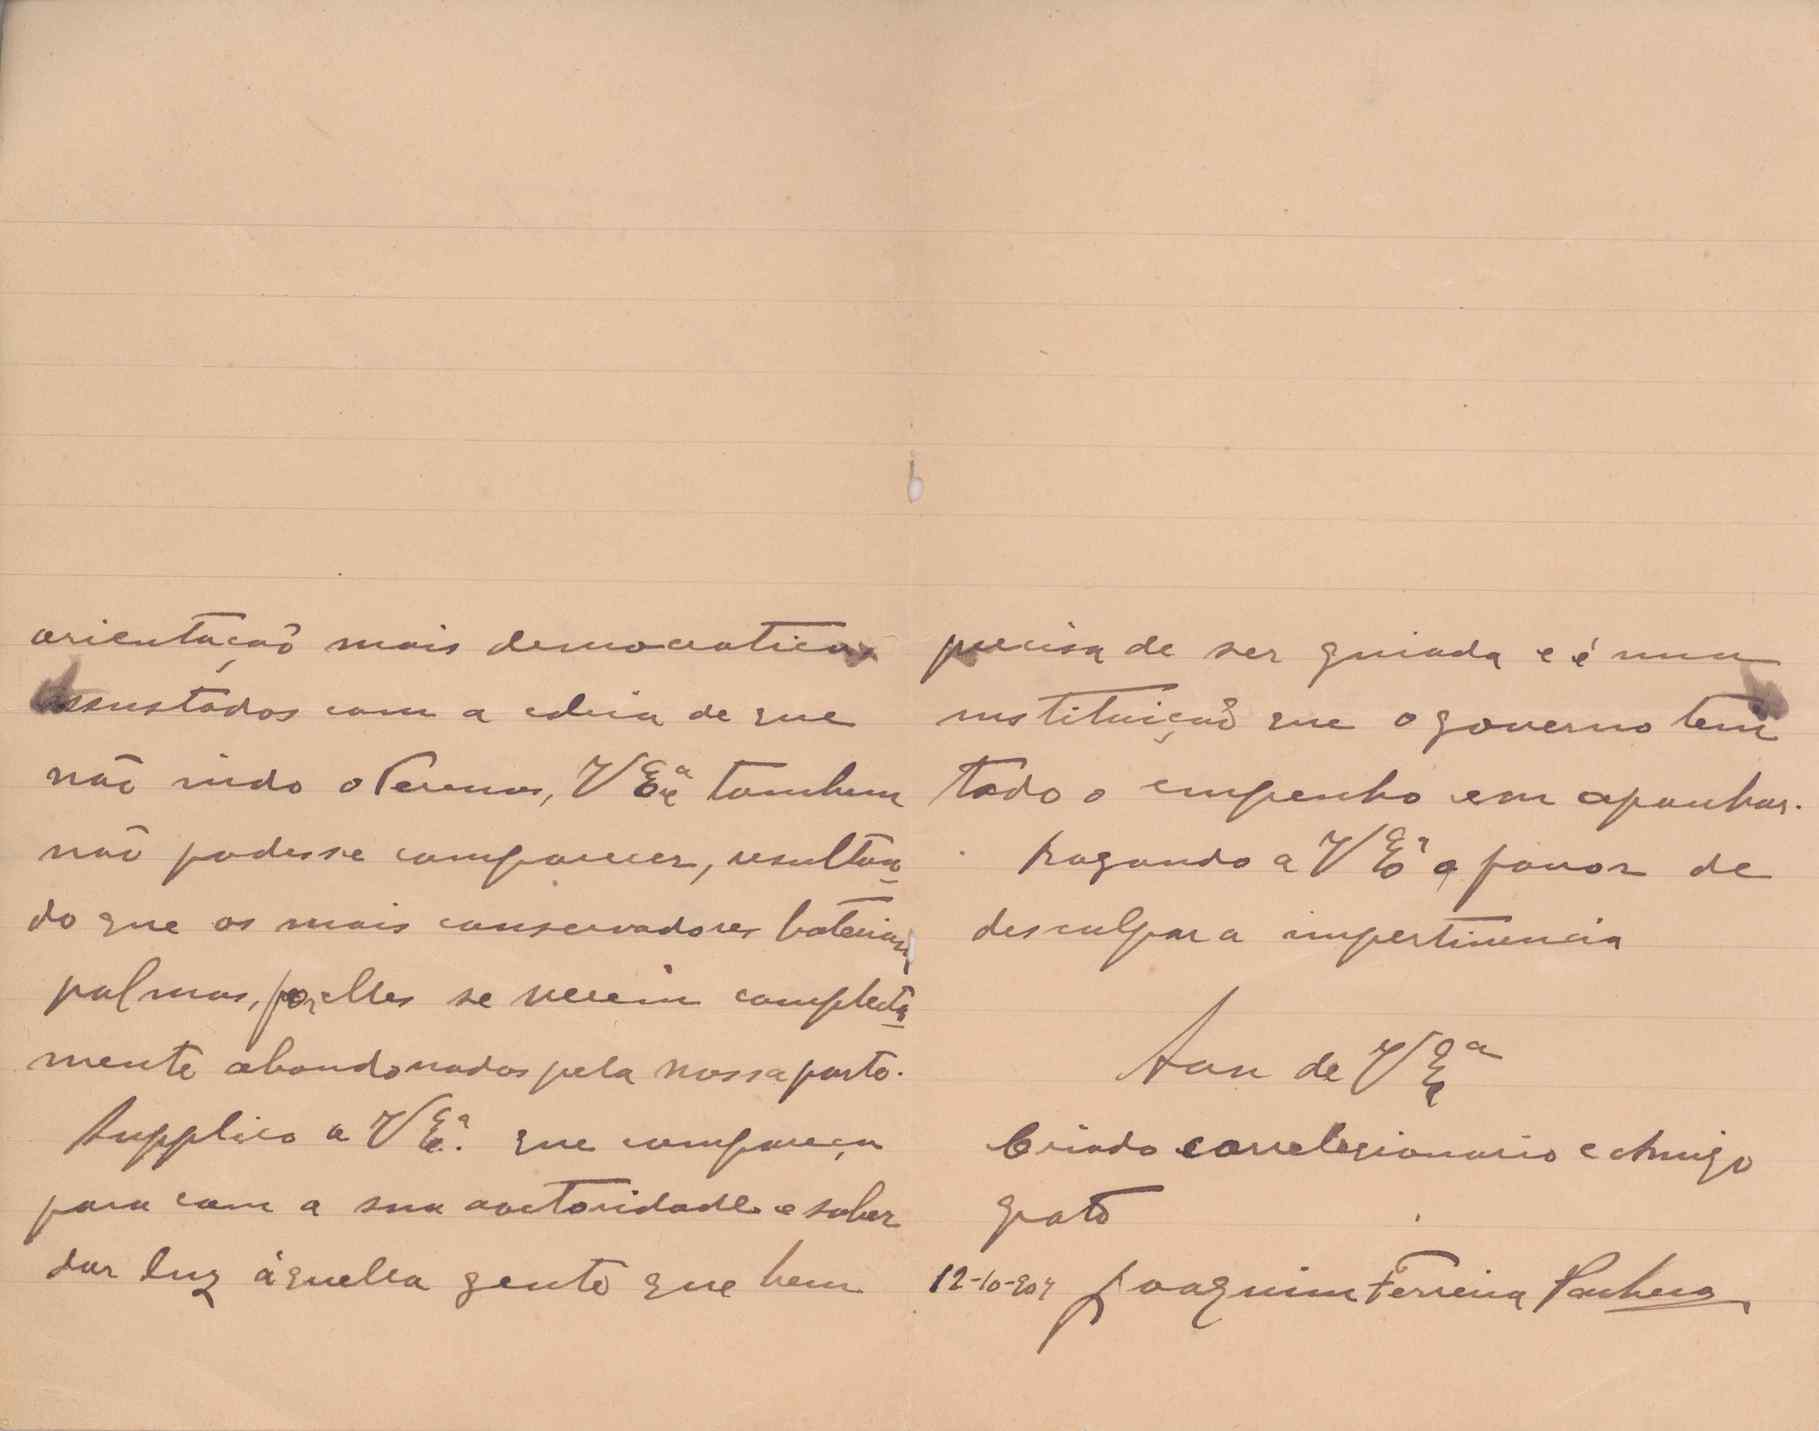 orientação mais democratica
assustados com a edeia de que
não indo o Veremos, V Exª tambem
não podesse comparecer, resultan-
do que os mais conservadores bateriam
palmas, por elles se verem completa-
mente abandonados pela nossa parte.
Supplico a V Exª. que compareça
para com a sua auctoridade e saber
dar luz áquella gente que bem
precisa de ser guiada e é uma
instituição que o governo tem
todo o empenho em apanhar.
Rogando a V Exª o favor de
desculpar a impertinencia
Sou de V Exª
Criado correlegionario e Amigo
grato
12-10-907 Joaquim Ferreira Pacheco